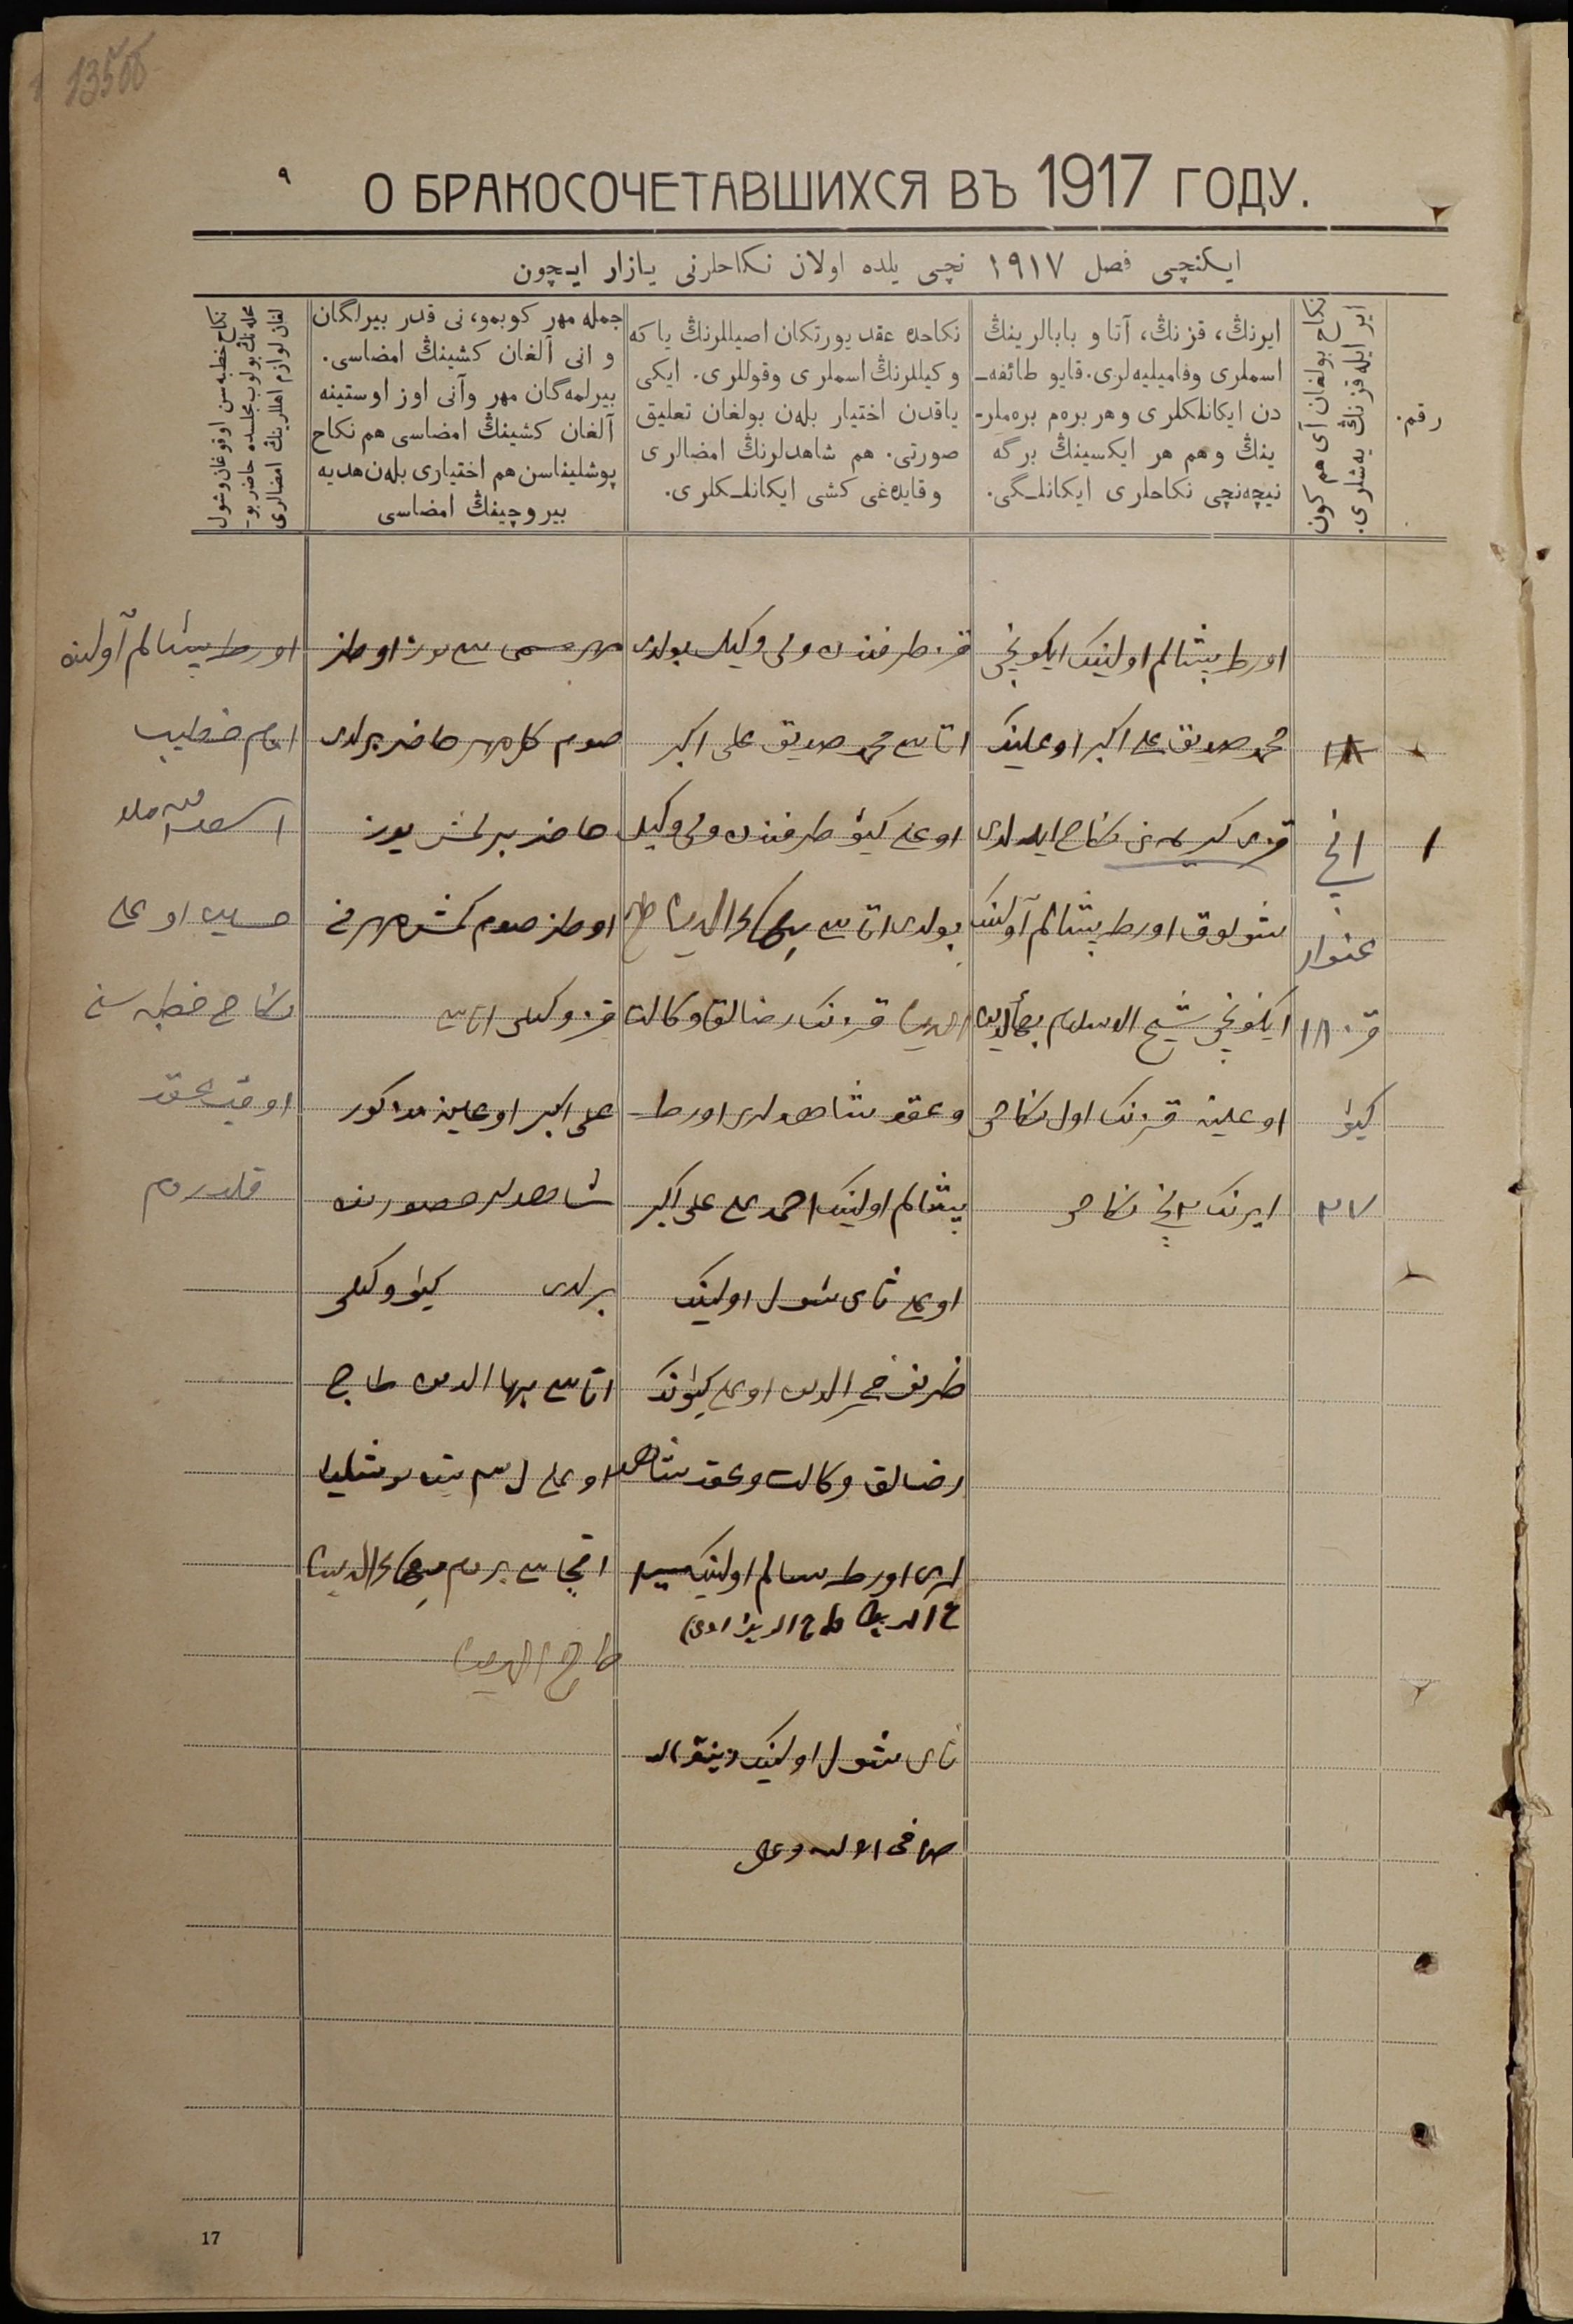 135об
٩
О БРАКОСОЧЕТАВШИХСЯ ВЪ 1917 ГОДУ.
ایكنچی فصل ١٩١٧ نچی یلده اولان نكاحلرنی یازار ایچون
رقم.
نكاح بولغان آی هم كون
ایر ایله قزنڭ یه‌شلری.
ایرنڭ، قزنڭ، آتا و بابالرینڭ
اسملری وفامیلیه‌لری. قایو طائفه‌ـ
دن ایكانلكلری وهر برەم برەملرـ
ینڭ وهم هر ایكسینڭ برگه
نیچه‌نچی نكاحلری ایكانلـگی.
نكاحده عقد یورتكان اصیللرنڭ یا كه
وكیللرنڭ اسملری وقوللری. ایكی
یاقدن اختیار بله‌ن بولغان تعلیق
صورتی. هم شاهدلرنڭ امضالری
وقایده‌غی كشی ایكانلـكلری.
جمله مهر كوبمو، نی قدر بیرلگان
و انی آلغان كشینڭ امضاسی.
بیرلمه‌گان مهر وآنی اوز اوستینه
آلغان كشینڭ امضاسی هم نكاح
پوشلیناسن هم اختیاری بله‌ن هدیه
بیروچینڭ امضاسی
نكاح خطبه‌سن اوقوغان وشول
محله‌نڭ بولوب مجلسده حاضر بوـ
لغان لوازم اهللرینڭ امضالری
١
١٨
انچی
غنوار
قز ١٨
كیاو
٢٧
اورط پشالم اولینڭ ایكونچی
محمد صدیق علی اكبر اوغلینڭ
قزی كریمه‌نی نكاح ایله‌لدی
شولوق اورط پشالم آولینڭ
ایكونچی شیخ الاسلام بهاالدین
اوغلینه قزنڭ اول نكاحی
ایرنڭ ٢نچی نكاحی
قز طرفندن ولی وكیل بولدی
اتاسی محمد صدیق علی اكبر
اوغلی كیاو طرفندن ولی وكیل
بولدی اتاسی بهاءالدین طاج
الدین قزنڭ رضالق وكالت
وعقد شاهدلری اورط
پشالم اولینڭ احمد علی علی اكبر
اوغلی تای شول اولینڭ
ظریف فخرالدین اوغلی كیاونڭ
رضالق وكالت وعقد شاهد
لری اورط پشالم اولینڭ
تای شول اولینڭ
مهر مسمی سی یوز اوطز
صوم كل مهر حاضر برلدی
حاضر برلمش یوز
اوطز صوم كمش مهرنی
قز وكیلی اتاسی
علی اكبر اوغلینه مذكور
شاهدلر حضورنده
برلدی كیاو وكیلی
اتاسی بهاالدین طاج
اوغلی پوشلینا
اقچاسی بردم بهاءالدین
طاج الدین
اورط پشالم آولینه
امام خطیب
اسعدالله ملا
حسین اوغلی
نكاح خطبه سنی
اوقب عقد
قلدردم
17